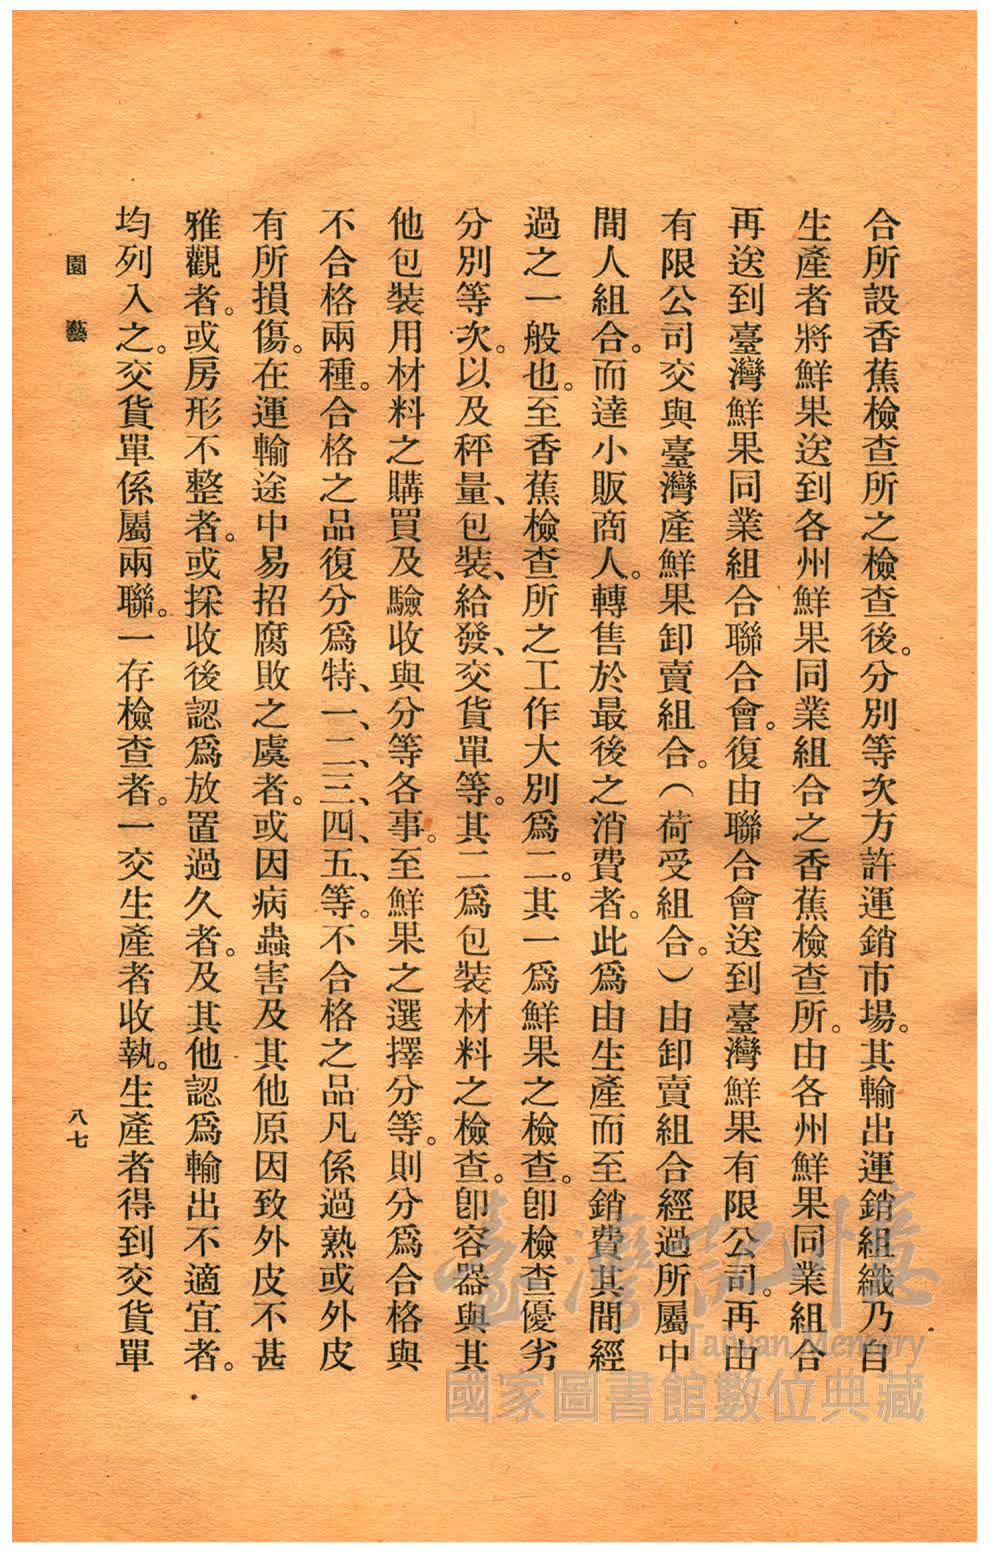 合所設香蕉檢查所之檢查後。分別等次方許運銷市場。其輸出運銷組織乃自
生產者將鮮果送到各州鮮果同業組合之香蕉檢查所。由各州鮮果同業組合
再送到臺灣鮮果同業組合聯合會。復由聯合會送到臺灣鮮果有限公司。再由
有限公司交與臺灣產鮮果卸賣組合。（荷受組合。）由卸賣組合經過所屬中
間人組合。而達小販商人。轉售於最後之消費者。此為由生產而至銷費其間經
過之一般也。至香蕉檢查所之工作大別為二。其一為鮮果之檢查。卽檢查優劣
分別等次。以及秤量、包裝、給發、交貨單等。其二為包裝材料之檢查。卽容器與其
他包裝用材料之購買及驗收與分等各事。至鮮果之選擇分等。則分為合格與
不合格兩種。合格之品復分爲特、一、二、三、四、五、等。不合格之品凡係過熟或外皮
有所損傷。在運輸途中易招腐敗之虞者。或因病蟲害及其他原因致外皮不甚
雅觀者。或房形不整者。或採收後認爲放置過久者。及其他認爲輸出不適宜者。
均列入之。交貨單係屬兩聯。一存檢查者。一交生產者收執。生產者得到交貨單
園藝
八七
臺灣記憶
Taiwan Memory
國家圖書館數位典藏